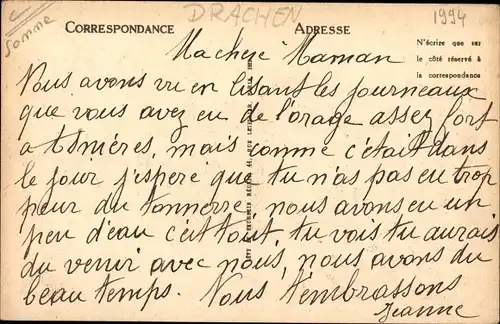 Somme
DRACHEN
1994
CORRESPONDANCE
ADRESSE
N'écrire que sur
le côté réservé à
la correspondance
Ma chère Maman
Vous avons vu en lisant les journeaux
que vous avez eu de l'orage assez fort
a Asnières, mais comme c'était dans
le jour j'espère que tu n'as pas eu trop
peur du tonnerre, nous avons eu un
peu d'eau c'est tout, tu vois tu aurais
du venir avec nous, nous avons du
beau temps. Nous t'embrassons
Jeanne